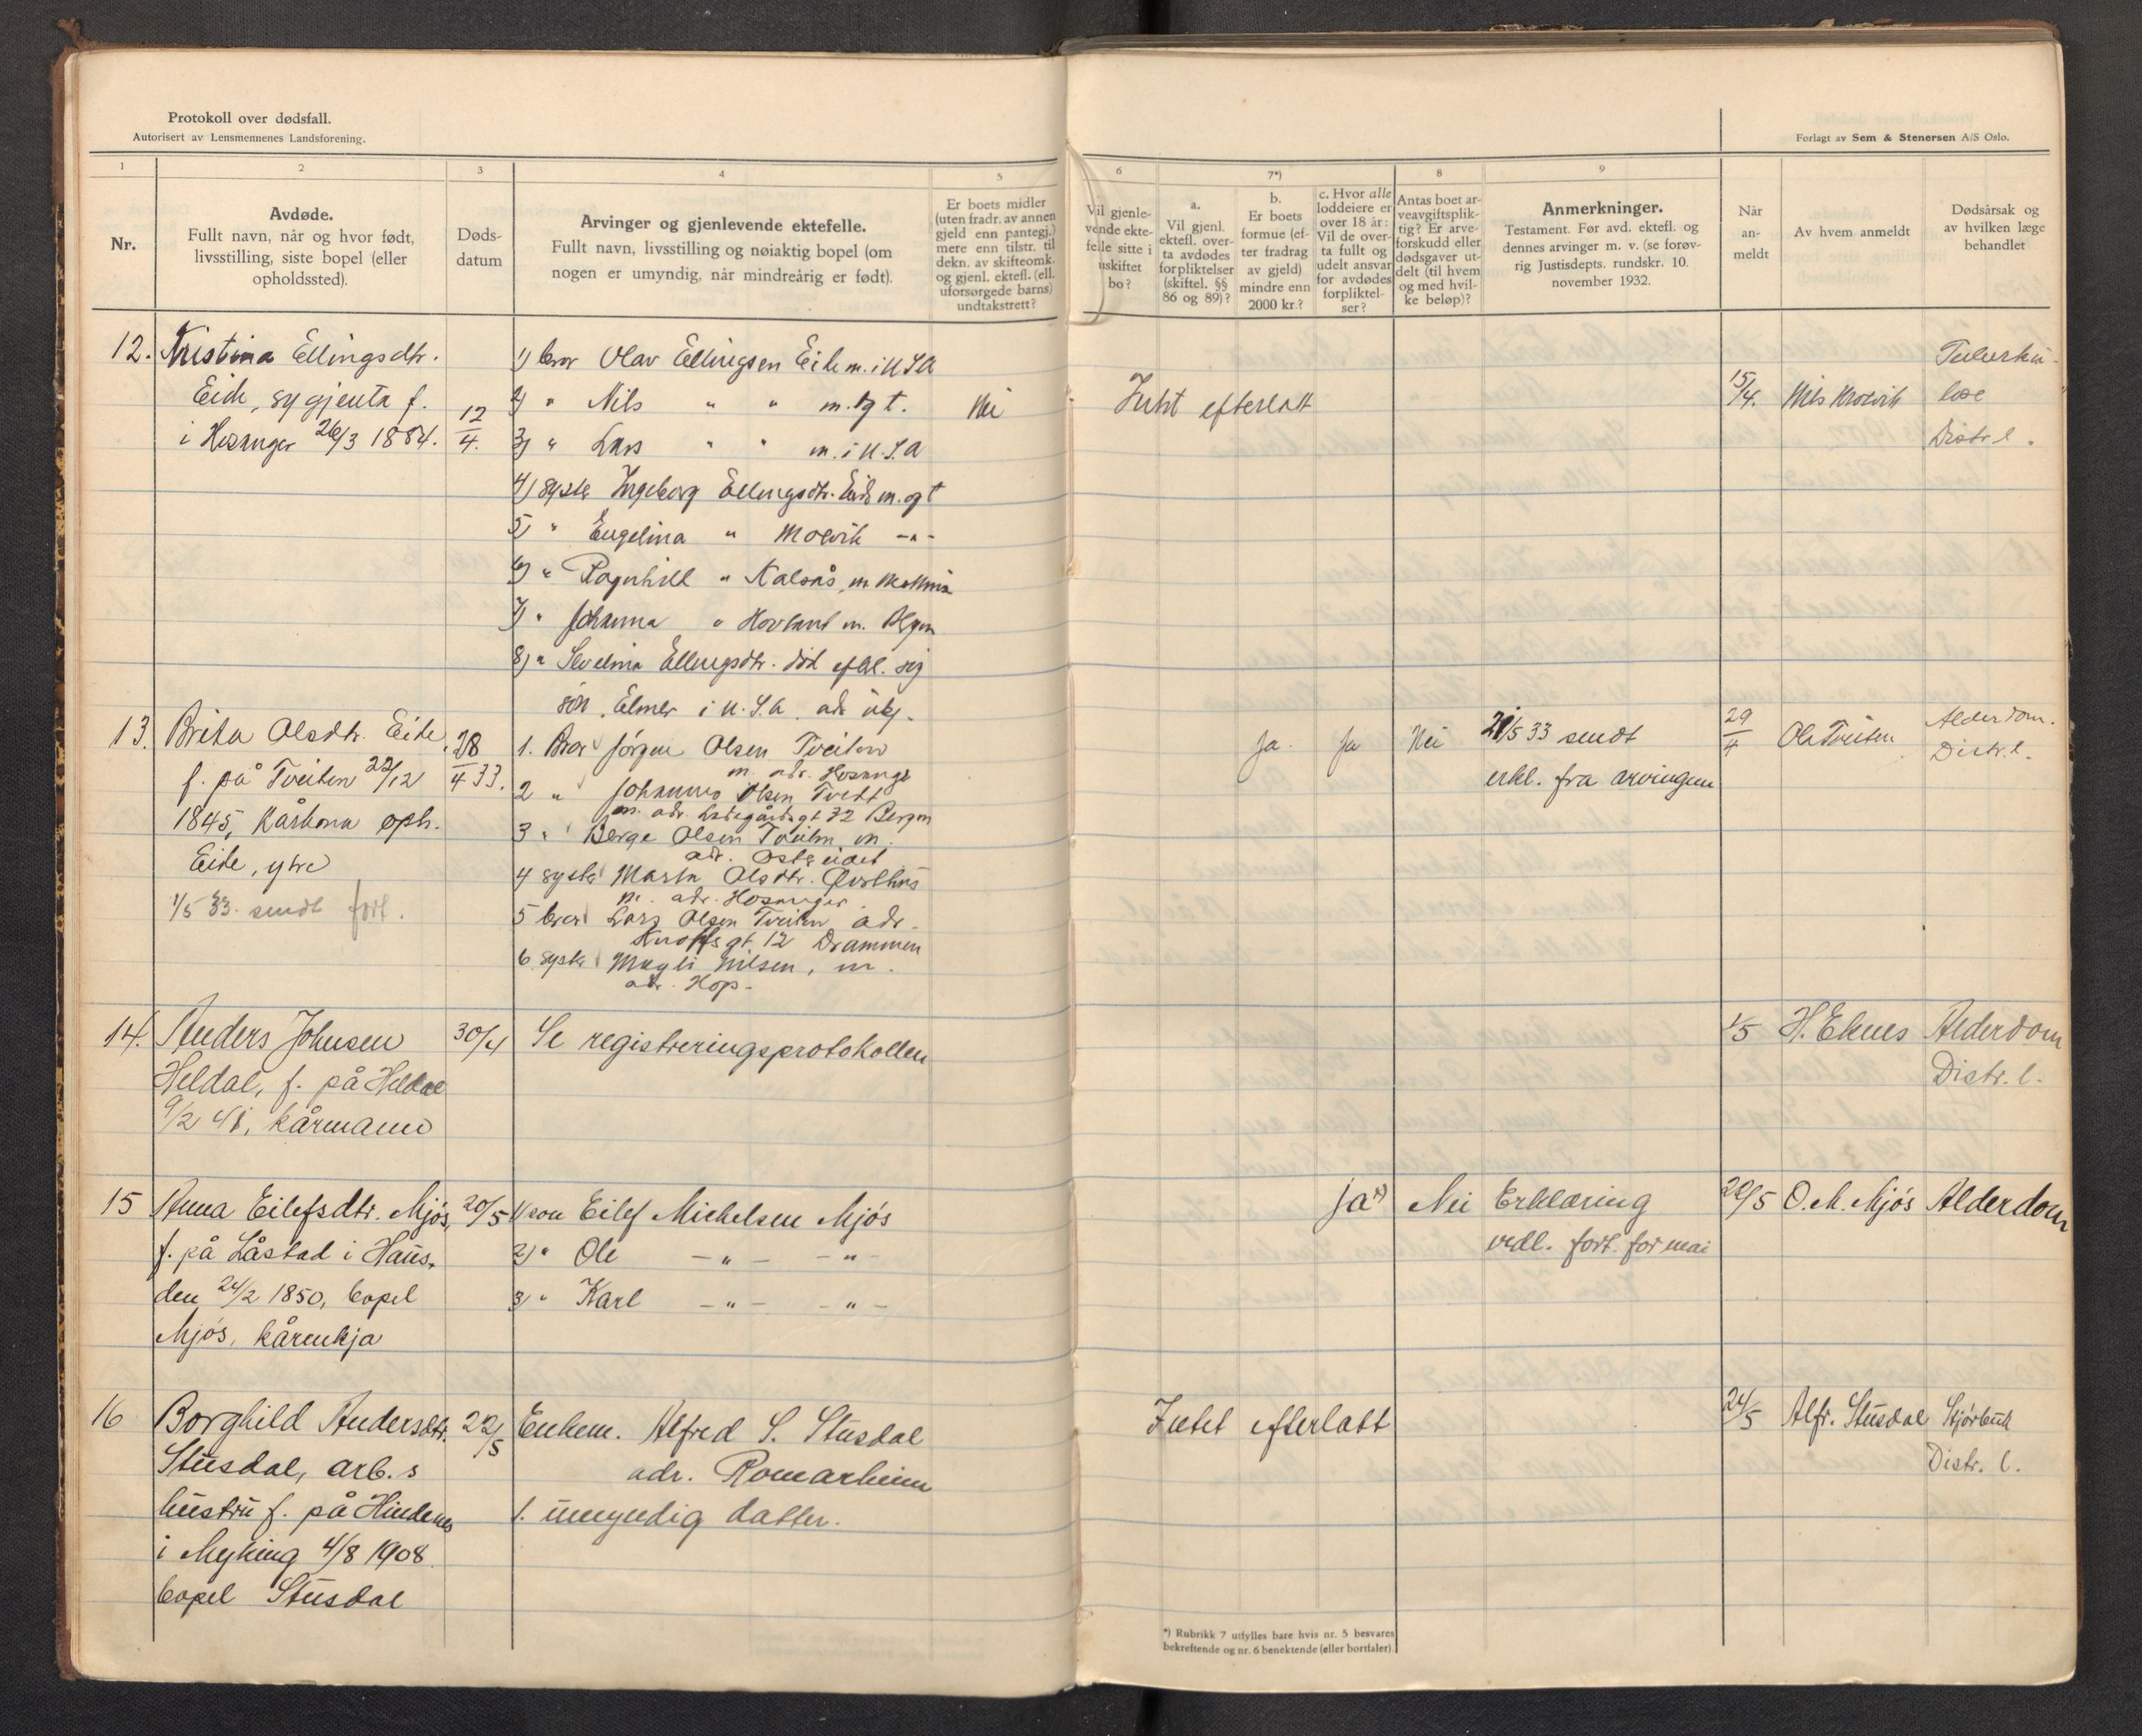 Protokoll over dødsfall.
Autorisert av Lensmennenes Landsforening.
Forlagt av Sem & Stenersen A/S Oslo.
1
2
3
4
5
6
7*)
8
9
Nr.
Avdøde.
Fullt navn, når og hvor født,
livsstilling, siste bopel (eller
opholdssted).
Døds-
datum
Arvinger og gjenlevende ektefelle.
Fullt navn, livsstilling og nøiaktig bopel (om
nogen er umyndig, når mindreårig er født).
Er boets midler
(uten fradr. av annen
gjeld enn pantegj.)
mere enn tilstr. til
dekn. av skifteomk.
og gjenl. ektefl. (ell.
uforsørgede barns)
undtakstrett?
Vil gjenle-
vende ekte-
felle sitte i
uskiftet
bo?
a.
Vil gjenl.
ektefl. over-
ta avdødes
forpliktelser
(skiftel. §§
86 og 89)?
b.
Er boets
formue (ef-
ter fradrag
av gjeld)
mindre enn
2000 kr.?
c. Hvor alle
loddeiere er
over 18 år:
Vil de over-
ta fullt og
udelt ansvar
for avdødes
forpliktel-
ser?
Antas boet ar-
veavgiftsplik-
tig? Er arve-
forskudd eller
dødsgaver ut-
delt (til hvem
og med hvil-
ke beløp)?
Anmerkninger.
Testament. Før avd. ektefl. og
dennes arvinger m. v. (se forøv-
rig Justisdepts. rundskr. 10.
november 1932.
Når
an-
meldt
Av hvem anmeldt
Dødsårsak og
av hvilken læge
behandlet
12. Kristina Ellingsdtr.
Eide, sygjenta f.
i Hosanger 26/3 1884.
12/4.
1) bror Olav Ellingsen Eide m. i U.S.A
2) " Nils " " m. og t.
3) " Lars " " m. i U.S.A
4) syster Ingeborg Ellingsdtr. Eide m. og t
5) " Engelina " Molvik -"-
6) " Ragnhild " Kalsås, m
7) " Johanna " Hovland m. Bergen
8) " Ellingsdtr. död efterl. sig
sön Elmer i U.S.A. adr
Nei
Intet efterlatt
15/4. Nils Molvik
Tuberku-
lose
Distr.l.
13. Brita Olsdtr. Eide,
f. på Tveiten 22/12
1845, kårkona oph.
Eide, ytre
1/5 33. sendt fort.
28/4 33.
1. Bror Jörgen Olsen Tveiten
m. adr. Hosanger
2 " Johannes Olsen Tveit
m. adr. Ladegårdsgt 72 Bergen
3 " Berge Olsen Tveiten m.
adr. Ostereidet
4 syster Marta Olsdtr.
m. adr. Hosanger
5 bror Lars Olsen Tveiten adr.
Knoffsgt. 12 Drammen
6 syster Magli Nilsen, m.
adr. Hop.
Ja. Ja Nei
21/5 33 sendt
erkl. fra arvingen
29/4 Ola Tveiten
Alderdom.
Distr.l.
14. Anders Johnsen
Heldal, f. på Heldal
9/2 41, kårmann
30/4
Se registreringsprotokollen
1/5 H. Eknes Alderdom
Distr. l.
15 Anna Eilefsdtr. Mjós,
f. på Låstad i Haus,
den 24/2 1850, bopel
Mjós, kårenkja
20/5
1) son Eilef Michelsen Mjós
2) " Ole -"- -"-
3) " Karl -"- -"-
Ja*) Nei Erklæring
vedl. fort. for mai
22/5 O. M. Mjós Alderdom
16 Borghild Andersdtr.
Stusdal, arb. s
hustru f. på Hindenes
i Myking 4/8 1908
bopel Stusdal
22/5
Enkem. Alfred S. Stusdal
adr. Romarheim
1. umyndig datter.
Intet efterlatt
24/5 Alfr. Stusdal
Distr. l.
*) Rubrikk 7 utfylles bare hvis nr. 5 besvares
bekreftende og nr. 6 benektende (eller bortfaler)